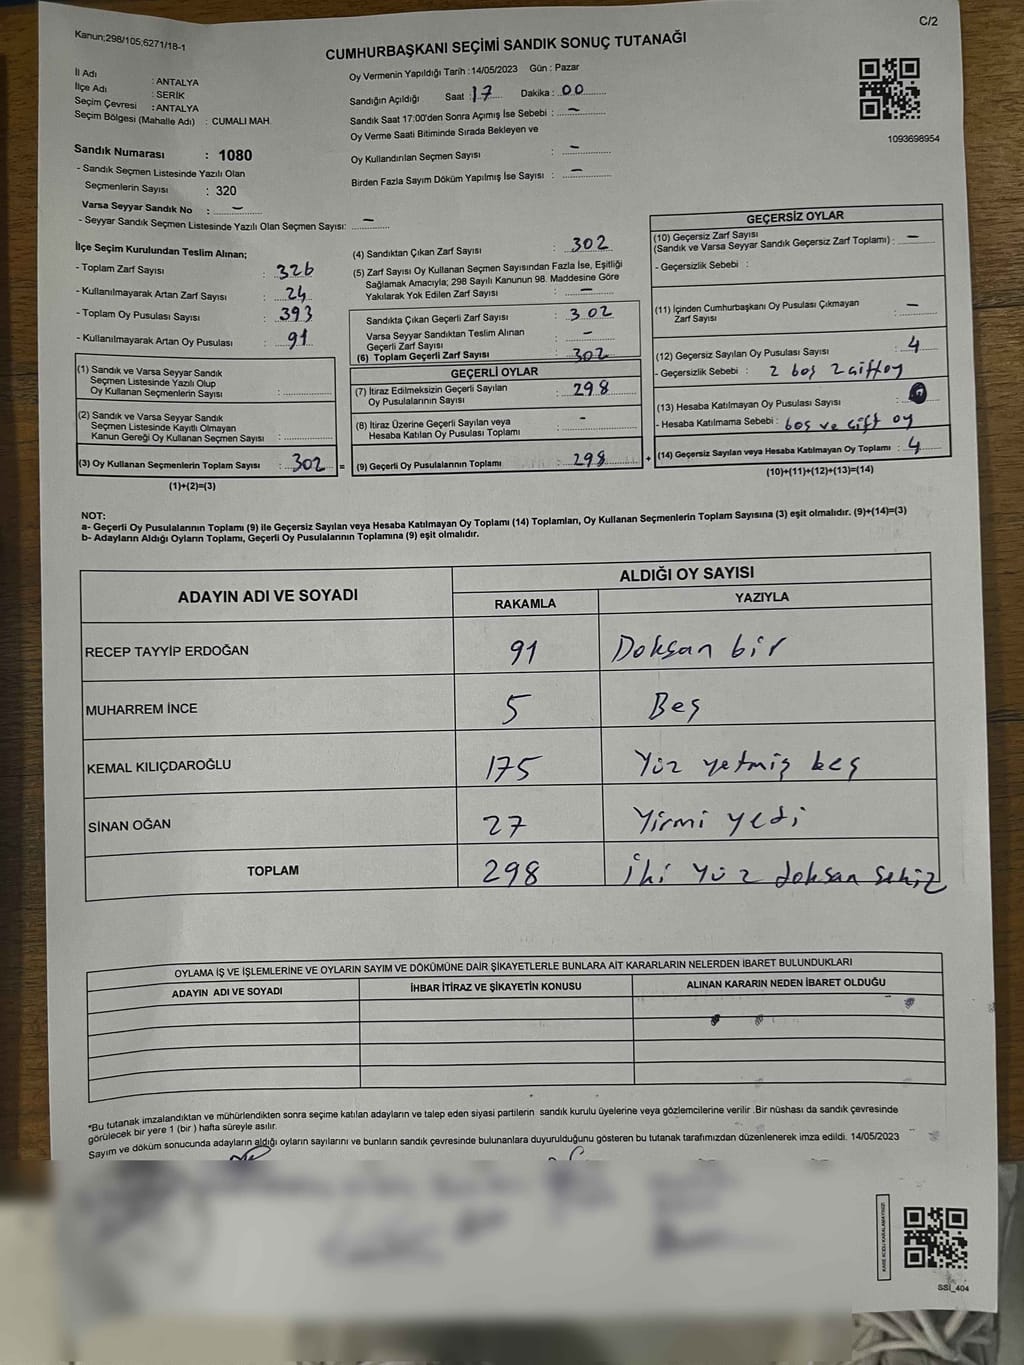 Kanun;298/105,6271/18-1
C/2
CUMHURBAŞKANI SEÇİMİ SANDIK SONUÇ TUTANAĞI
İl Adı : ANTALYA
İlçe Adı : SERİK
Seçim Çevresi : ANTALYA
Seçim Bölgesi (Mahalle Adı) : CUMALI MAH.
Sandık Numarası : 1080
- Sandık Seçmen Listesinde Yazılı Olan
Seçmenlerin Sayısı : 320
Varsa Seyyar Sandık No : –
- Seyyar Sandık Seçmen Listesinde Yazılı Olan Seçmen Sayısı: –
Oy Vermenin Yapıldığı Tarih : 14/05/2023 Gün : Pazar
Sandığın Açıldığı Saat : 17 Dakika : 00
Sandık Saat 17:00'den Sonra Açımış İse Sebebi : –
Oy Verme Saati Bitiminde Sırada Bekleyen ve
Oy Kullandırılan Seçmen Sayısı : –
Birden Fazla Sayım Döküm Yapılmış İse Sayısı : –
1093698954
İlçe Seçim Kurulundan Teslim Alınan;
- Toplam Zarf Sayısı : 326
- Kullanılmayarak Artan Zarf Sayısı : 24
- Toplam Oy Pusulası Sayısı : 393
- Kullanılmayarak Artan Oy Pusulası : 91
(1) Sandık ve Varsa Seyyar Sandık
Seçmen Listesinde Yazılı Olup
Oy Kullanan Seçmenlerin Sayısı :
(2) Sandık ve Varsa Seyyar Sandık
Seçmen Listesinde Kayıtlı Olmayan
Kanun Gereği Oy Kullanan Seçmen Sayısı :
(3) Oy Kullanan Seçmenlerin Toplam Sayısı : 302 =
(1)+(2)=(3)
(4) Sandıktan Çıkan Zarf Sayısı : 302
(5) Zarf Sayısı Oy Kullanan Seçmen Sayısından Fazla İse, Eşitliği
Sağlamak Amacıyla; 298 Sayılı Kanunun 98. Maddesine Göre
Yakılarak Yok Edilen Zarf Sayısı : –
Sandıkta Çıkan Geçerli Zarf Sayısı : 302
Varsa Seyyar Sandıktan Teslim Alınan
Geçerli Zarf Sayısı : –
(6) Toplam Geçerli Zarf Sayısı : 302
GEÇERLİ OYLAR
(7) İtiraz Edilmeksizin Geçerli Sayılan
Oy Pusulalarının Sayısı : 298
(8) İtiraz Üzerine Geçerli Sayılan veya
Hesaba Katılan Oy Pusulası Toplamı : –
(9) Geçerli Oy Pusulalarının Toplamı : 298 +
GEÇERSİZ OYLAR
(10) Geçersiz Zarf Sayısı
(Sandık ve Varsa Seyyar Sandık Geçersiz Zarf Toplamı) : –
- Geçersizlik Sebebi :
(11) İçinden Cumhurbaşkanı Oy Pusulası Çıkmayan
Zarf Sayısı : –
(12) Geçersiz Sayılan Oy Pusulası Sayısı : 4
- Geçersizlik Sebebi : 2 boş 2 çift oy
(13) Hesaba Katılmayan Oy Pusulası Sayısı :
- Hesaba Katılmama Sebebi : boş ve çift oy
(14) Geçersiz Sayılan veya Hesaba Katılmayan Oy Toplamı : 4
(10)+(11)+(12)+(13)=(14)
NOT:
a- Geçerli Oy Pusulalarının Toplamı (9) ile Geçersiz Sayılan veya Hesaba Katılmayan Oy Toplamı (14) Toplamları, Oy Kullanan Seçmenlerin Toplam Sayısına (3) eşit olmalıdır. (9)+(14)=(3)
b- Adayların Aldığı Oyların Toplamı, Geçerli Oy Pusulalarının Toplamına (9) eşit olmalıdır.
ADAYIN ADI VE SOYADI
ALDIĞI OY SAYISI
RAKAMLA YAZIYLA
RECEP TAYYİP ERDOĞAN 91 Doksan bir
MUHARREM İNCE 5 Beş
KEMAL KILIÇDAROĞLU 175 Yüz yetmiş beş
SİNAN OĞAN 27 Yirmi yedi
TOPLAM 298 İki yüz doksan sekiz
OYLAMA İŞ VE İŞLEMLERİNE VE OYLARIN SAYIM VE DÖKÜMÜNE DAİR ŞİKAYETLERLE BUNLARA AİT KARARLARIN NELERDEN İBARET BULUNDUKLARI
ADAYIN ADI VE SOYADI İHBAR İTİRAZ VE ŞİKAYETİN KONUSU ALINAN KARARIN NEDEN İBARET OLDUĞU
*Bu tutanak imzalandıktan ve mühürlendikten sonra seçime katılan adayların ve talep eden siyasi partilerin sandık kurulu üyelerine veya gözlemcilerine verilir .Bir nüshası da sandık çevresinde
görülecek bir yere 1 (bir ) hafta süreyle asılır.
Sayım ve döküm sonucunda adayların aldığı oyların sayılarını ve bunların sandık çevresinde bulunanlara duyurulduğunu gösteren bu tutanak tarafımızdan düzenlenerek imza edildi. 14/05/2023
KARE KODU KARALAMAYINIZ!
SSİ_404